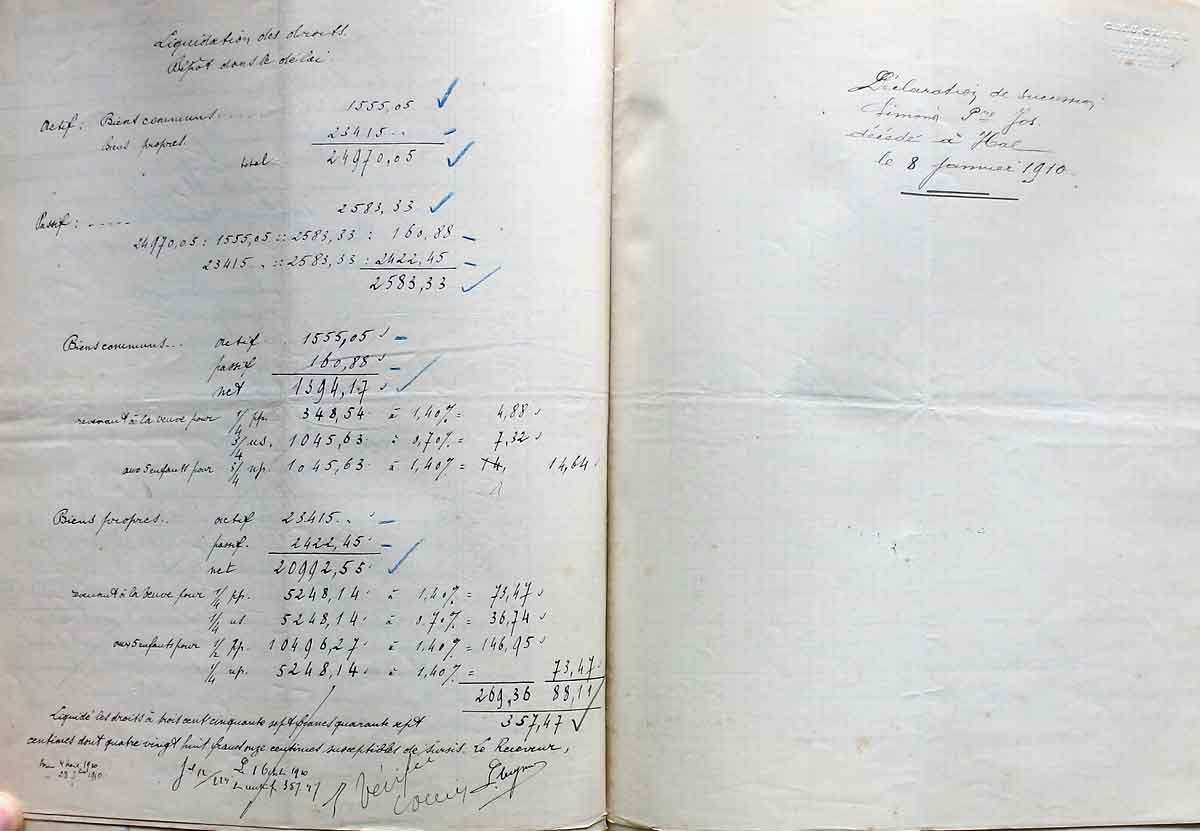 Liquidation des droits.
Dépôt dans le délai.
Actif : Biens communs ...... 1555,05
Biens propres. 23415 ..
total. 24970,05
Passif : ..... 2583,33
24970,05 : 1555,05 :: 2583,33 : 160,88
23415 .. :: 2583,33 : 2422,45
2583,33
Biens communs... actif .. 1555,05
passif 160,88
net 1394,17
revenant à la veuve pour 1/4 pp. 348,54 à 1,40% = 4,88
3/4 us. 1045,63 à 0,70% = 7,32
aux 5 enfants pour 3/4 np. 1045,63 à 1,40% = 14, 14,64
Biens propres.. actif 23415 ..
passif. 2422,45
net 20992,55
revenant à la veuve pour 1/4 pp. 5248,14 à 1,40% = 73,47
1/4 us. 5248,14 à 0,70% = 36,74
aux 5 enfants pour 1/2 pp. 10496,27 à 1.40% = 146,95
1/4 np. 5248,14 à 1,40% = 73,47
269,36 88,11
357,47
Liquidé les droits à trois cent cinquante sept francs quarante sept
centimes dont quatre vingt huit francs onze centimes susceptibles de sursis. Le Receveur,
1910
1910
357,47
Vérifié
Déclaration de succession
Simons Pre Jos.
décédé à Hal
le 8 janvier 1910.